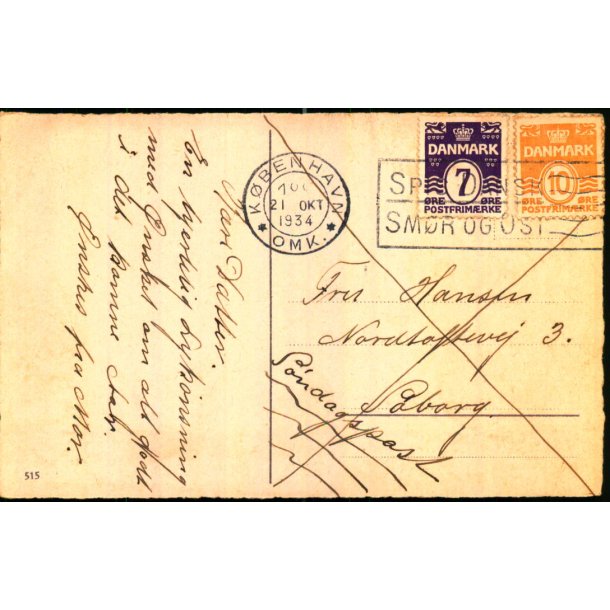 DANMARK
7
ØRE ØRE
POSTFRIMÆRKE
DANMARK
10
ØRE ØRE
POSTFRIMÆRKE
KØBENHAVN
21 OKT
1934
* OMK. *
SMØR OG OST
Kære Datter.
En hjertelig Lykønskning
med Ønsket om alt godt
i det kommende Aar.
Ønskes fra Mor.
Fru Hansen
Nordtoftevej 3.
Søborg.
Søndagspost
515